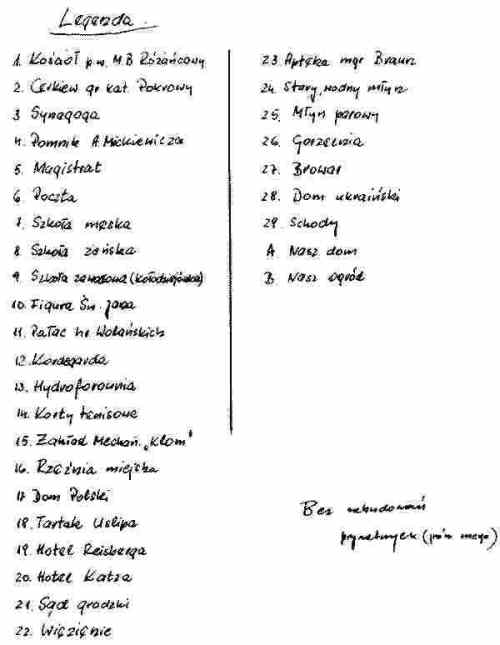 Legenda.
1. Kościół p.w. M.B Różańcowy
2. Cerkiew gr kat. Pokrowy
3 Synagoga
4. Pomnik A. Mickiewicza
5. Magistrat
6. Poczta
7. Szkoła męska
8. Szkoła żeńska
9. Szkoła zawodowa (Kołodziejówka)
10. Figura Św. Jana
11. Pałac hr. Wolańskich
12. Kordegarda
13. Hydroforownia
14. Korty tenisowe
15. Zakład Mechan. „Klom"
16. Rzeźnia miejska
17 Dom Polski
18. Tartak Uslipa
19. Hotel Reisberga
20. Hotel Katza
21. Sąd grodzki
22. Więzienie
23. Apteka mgr Braun
24. Stary, wodny młyn
25. Młyn parowy
26. Gorzelnia
27. Browar
28. Dom ukraiński
29. Schody
A Nasz dom
B. Nasz ogród
Bez zabudowań
prywatnych (prócz mego)